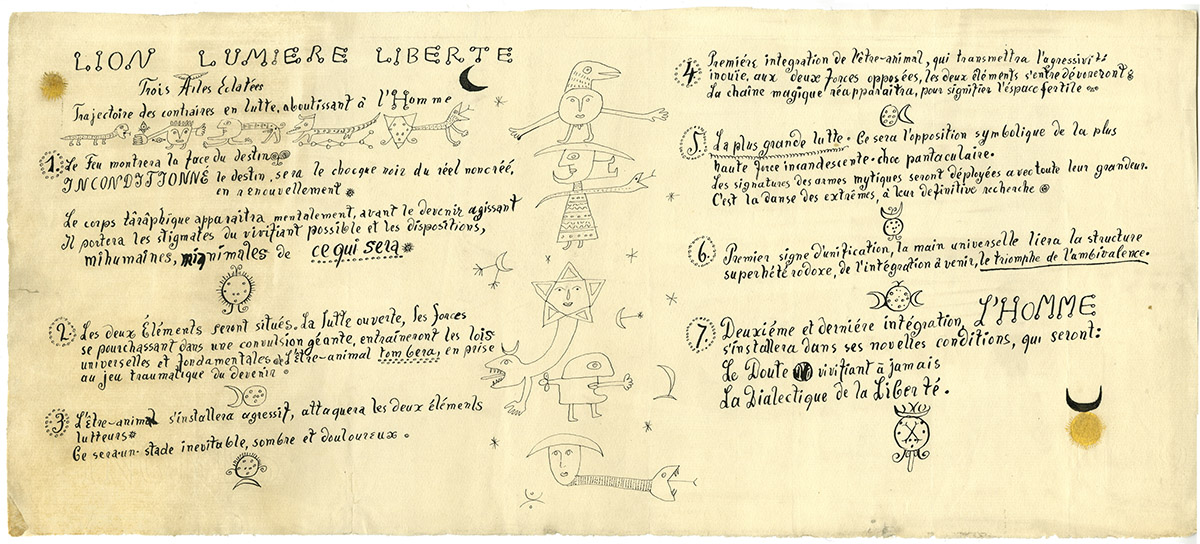 LION LUMIERE LIBERTE
Trois Ailes Eclatées
Trajectoire des contraires en lutte, aboutissant à l'Homme
1. Le Feu montrera la face du destin
INCONDITIONNÉ le destin, sera le chocque noir du réel noncréé,
en renouvellement
Le corps târâphique apparaitra mentalement, avant le devenir agissant
Il portera les stigmates du vivifiant possible et les dispositions,
mihumaines, mianimales de ce qui sera
2. Les deux Éléments seront situés. La lutte ouverte, les forces
se pourchassant dans une convulsion géante, entraîneront les lois
universelles et fondamentales. L'être-animal tombera, en prise
au jeu traumatique du devenir
3. L'être-animal s'installera agressif, attaquera les deux éléments
lutteurs
Ce sera un stade inevitable, sombre et douloureux
4. Première integration de l'être-animal, qui transmettra l'agressivité
inouie, aux deux forces opposées, les deux éléments s'entre dévoneront
La chaîne magique réapparaitra, pour signifier l'espace fertile
5. La plus grande lutte. Ce sera l'opposition symbolique de la plus
haute force incandescente - choc pantaculaire.
Les signatures des armes mytiques seront déployées avec toute leur grandeur.
C'est la danse des extrêmes, à leur definitive recherche
6. Premier signe d'unification, la main universelle liera la structure
superhétérodoxe, de l'intégration à venir, le triomphe de l'ambivalence.
7. Deuxiéme et derniére intégration, L'HOMME
s'installera dans ses novelles conditions, qui seront:
Le Doute vivifiant à jamais
La Dialectique de la Liberté.